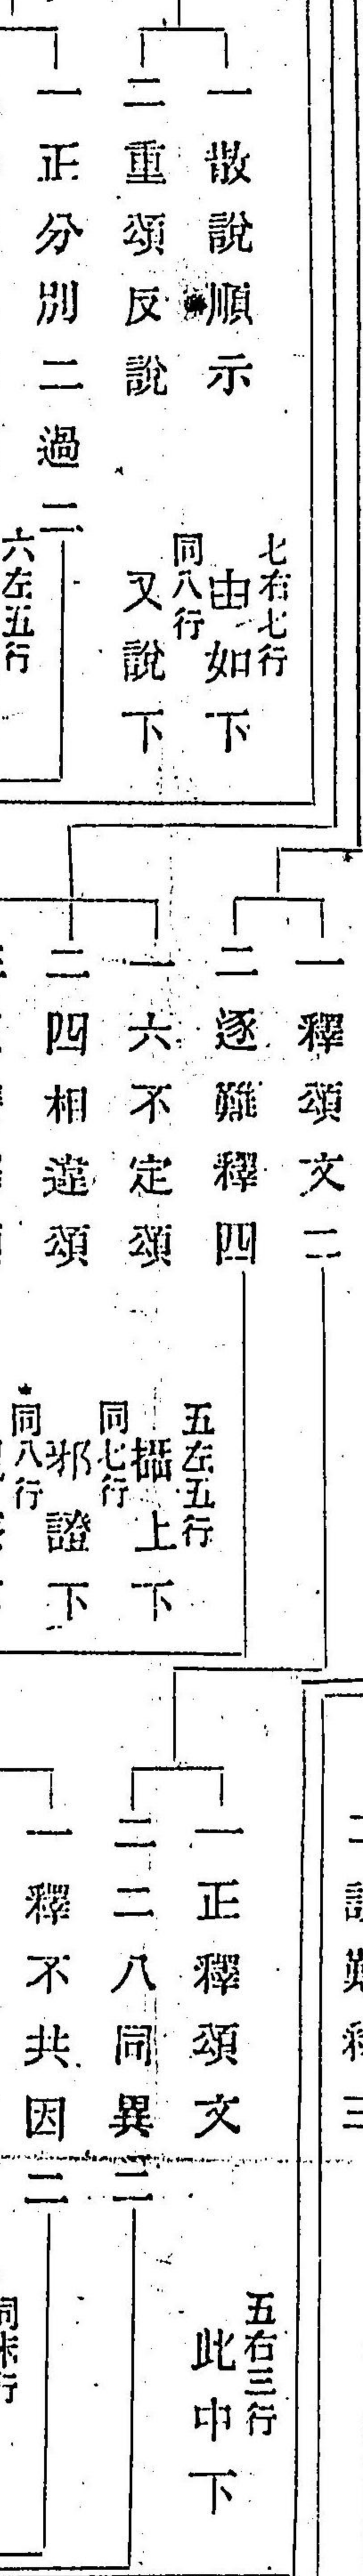 一散說順示
七右七行
由如下
二重頌反說
同八行
又說下
一正分別二過二
六左五行
一釋頌文二
二逐難釋四
一六不定頌
五左五行
攝上下
二四相違頌
同七行
邪證下
同八行
一正釋頌文
五右三行
此中下
二二八同異二
一釋不共因二
同末行